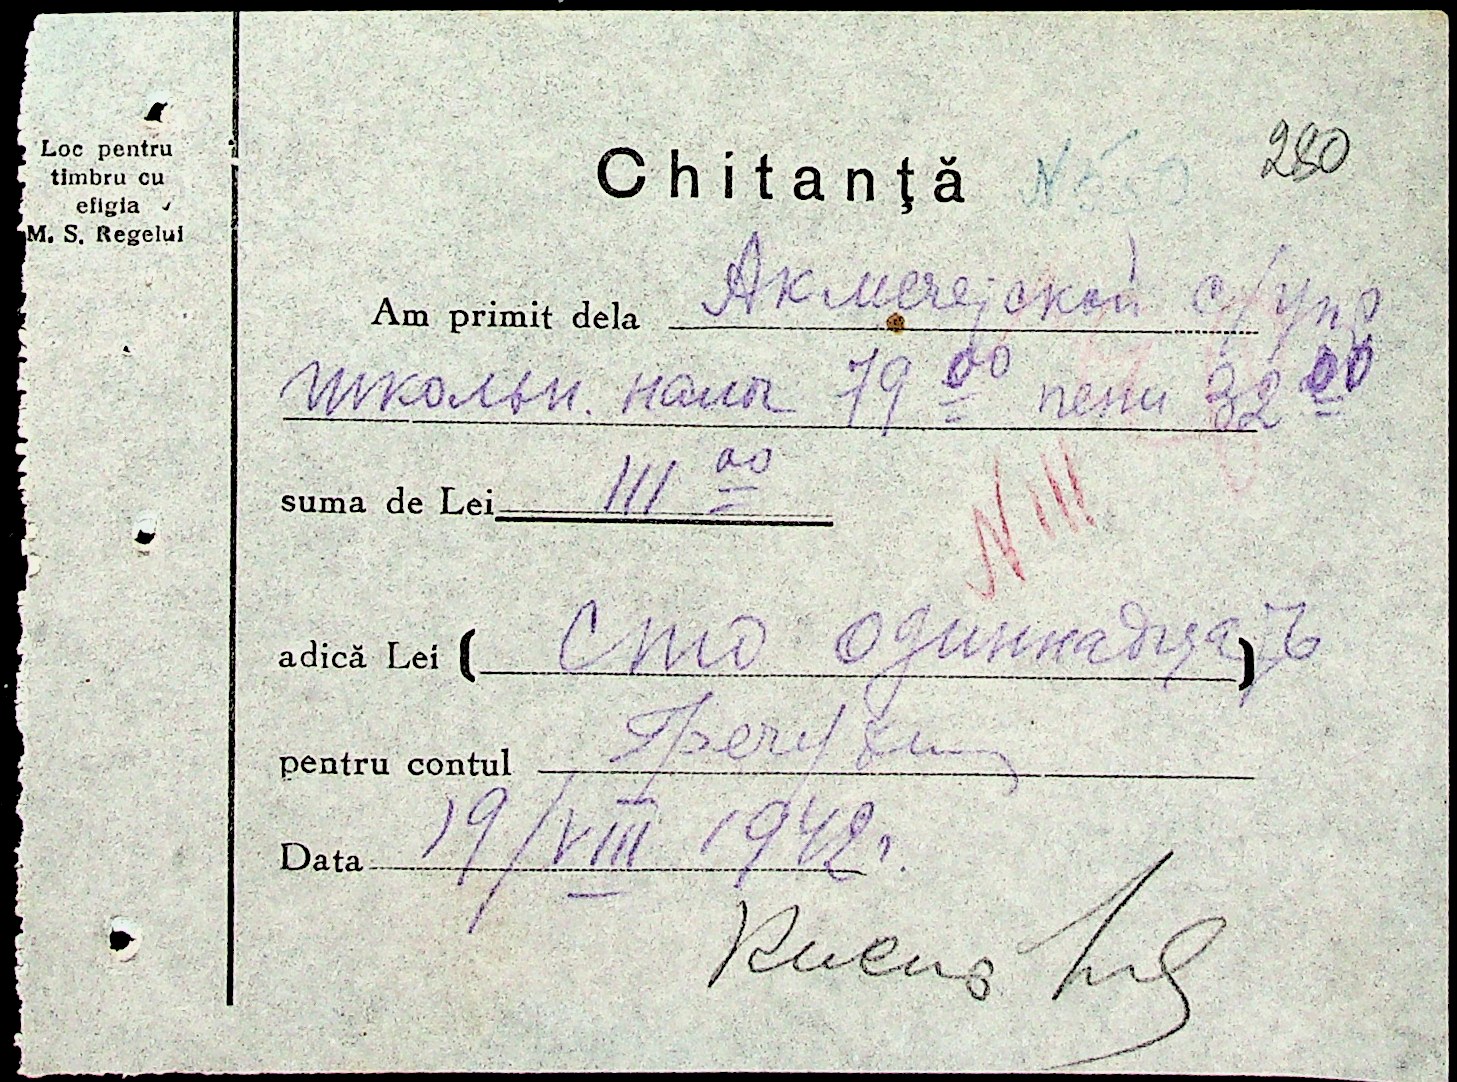 Loc pentru
timbru cu
efigia
M. S. Regelui
280
Chitanţă № 550
Am primit dela Акмечејской с/упр
школьн. налог 79 00 пени 32 00
suma de Lei 111 00
N 111
adică Lei ( Сто одиннадцать )
pentru contul
Data 19/VIII 1942г.